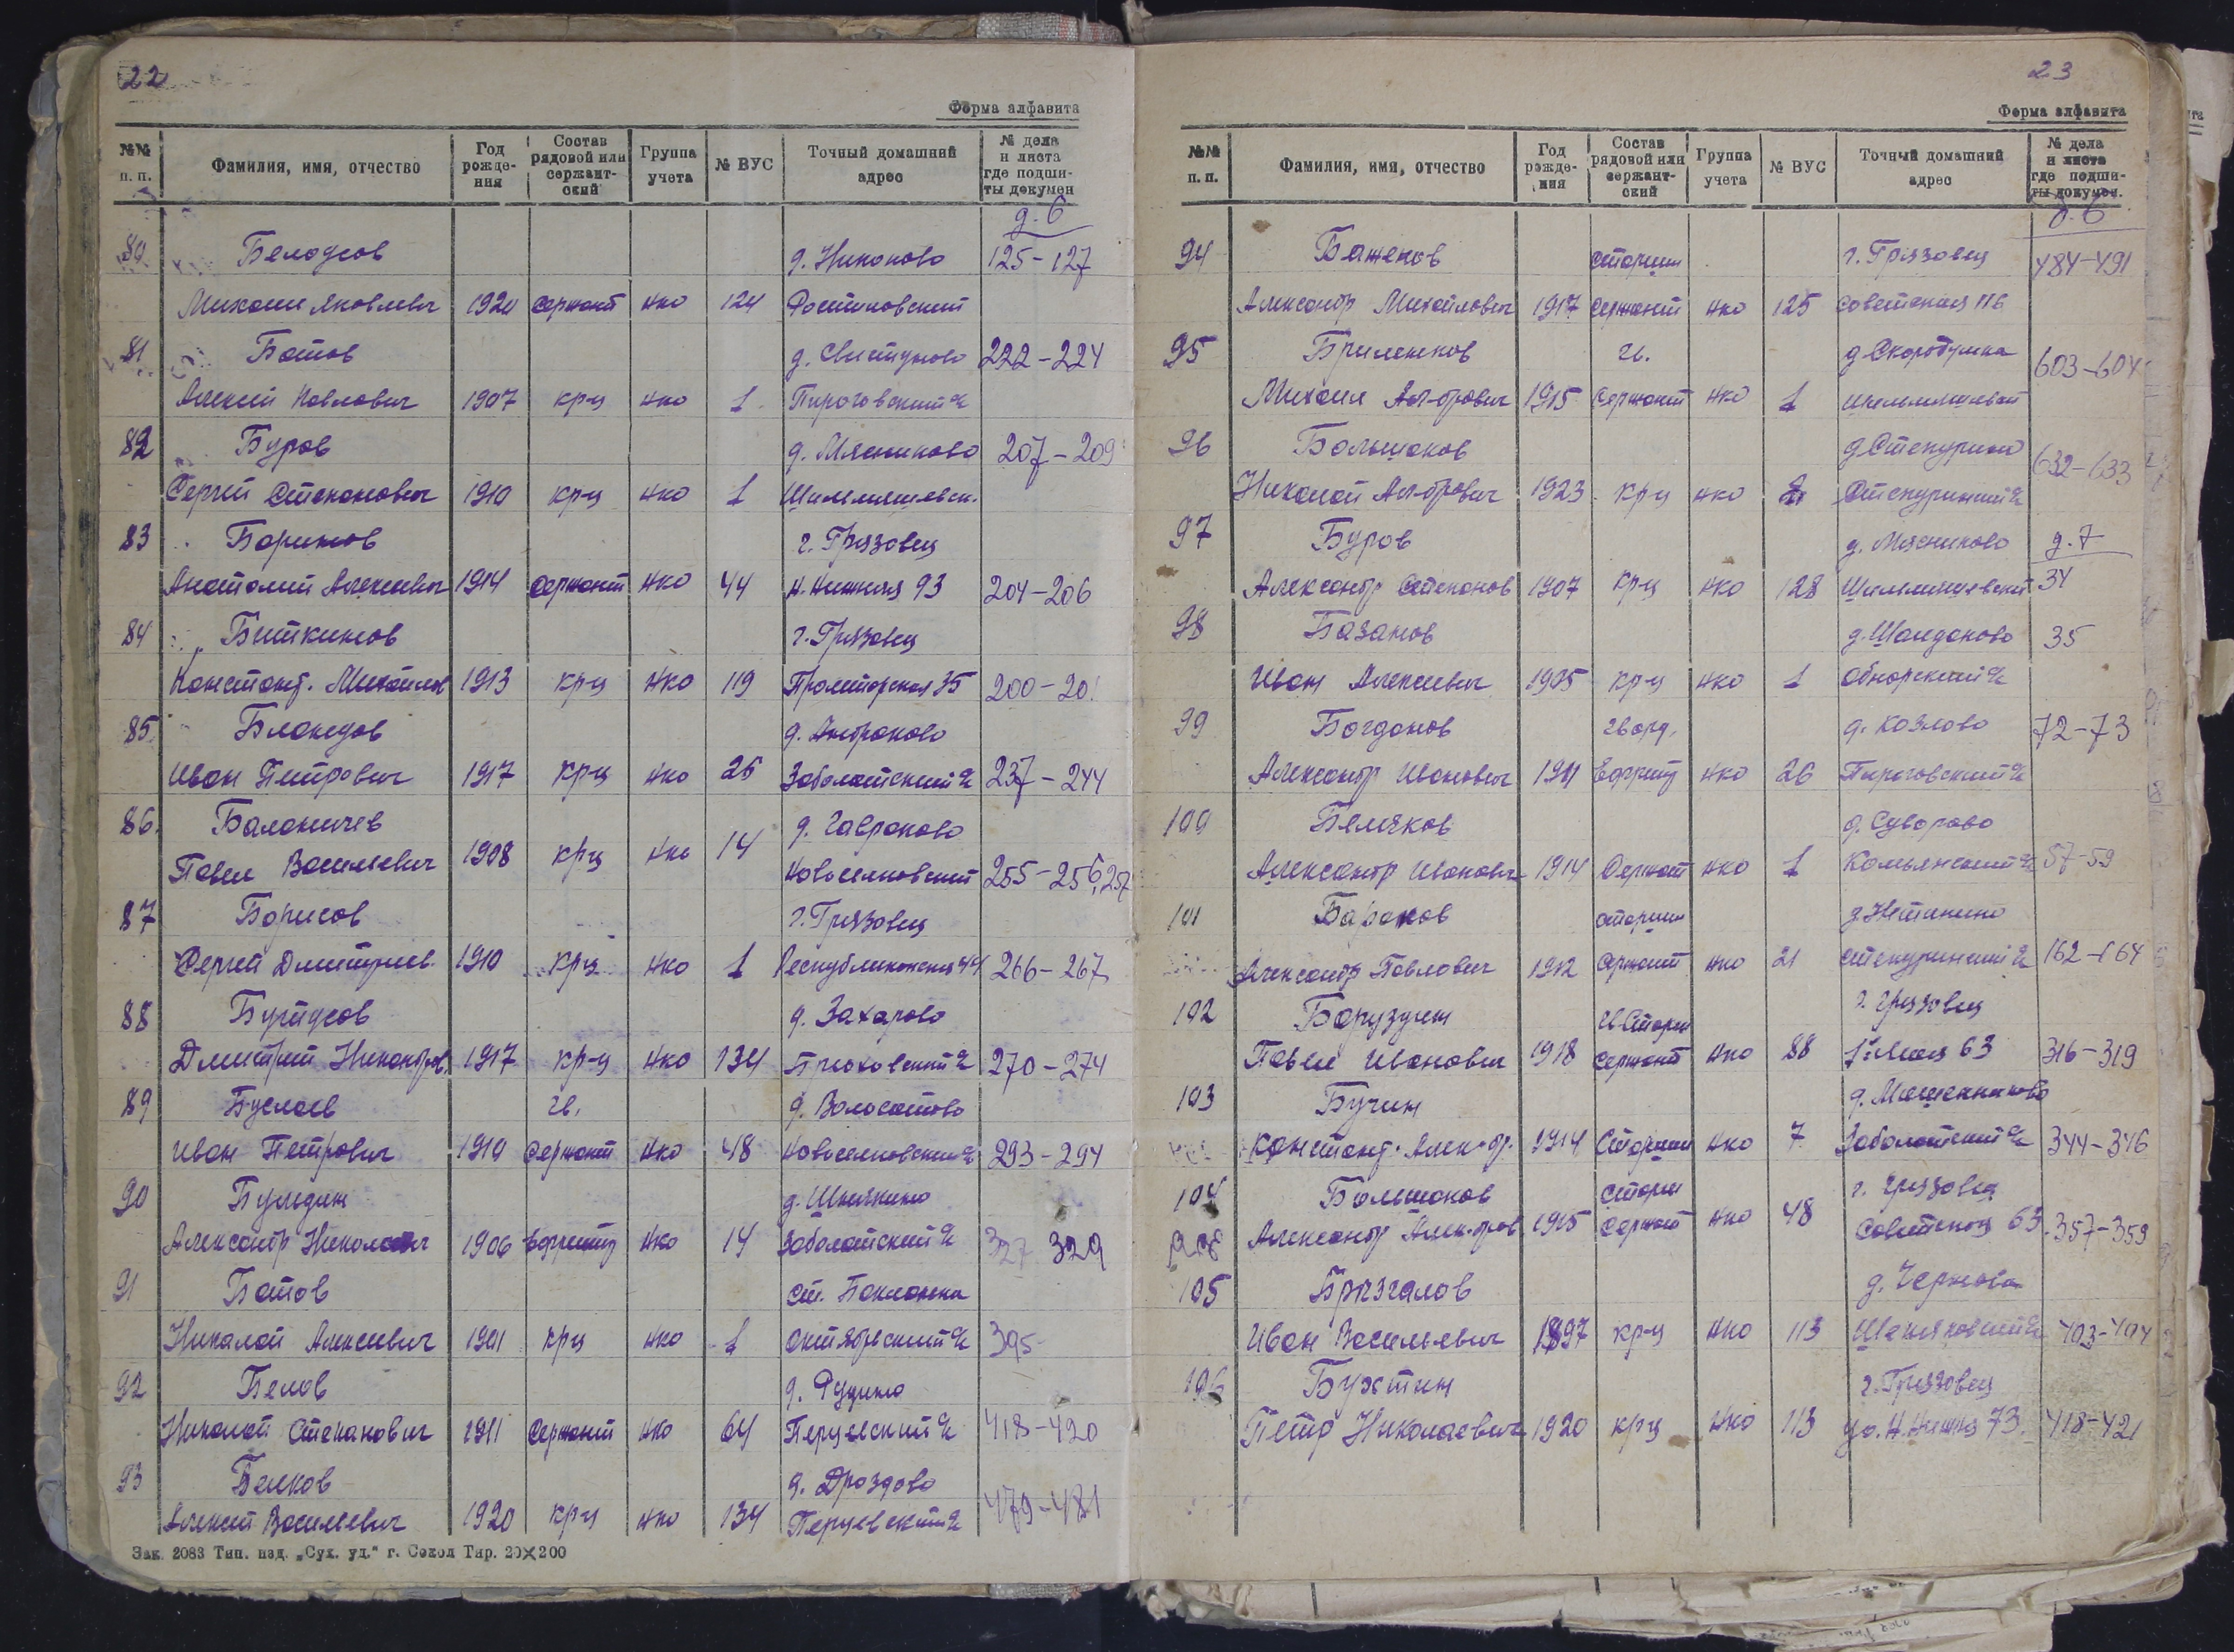 22
Форма алфавита
№№ п. п. Фамилия, имя, отчество Год рожде- ния Состав рядовой или сержант- ский Группа учета № ВУС Точный домашний адрес № дела и листа где подши- ты докумен
д. 6
80 Белоусов д. Никоново 125-127
Михаил Яковлевич 1920 Сержант нко 124 Ростиловский
81 Батов д. Свистуново 222-224
Алексей Павлович 1907 кр-ц нко 1 Пироговский
82 Буров д. Мясниково 207-209
Сергей Степанович 1910 кр-ц нко 1 Шилмяшевск.
83 Баринов г. Грязовец
Анатолий Алексеевич 1914 Сержант нко 44 93 204-206
84 Биткинов г. Грязовец
Констант. Михайлов 1913 кр-ц нко 119 35 200-20
85 Бландов д. Антроково
Иван Петрович 1917 кр-ц нко 26 Заболотский 237-244
86 Балоничев д. Гавроково
Павел Васильевич 1908 кр-ц нко 14 Новоселковский 255-256,257
87 Борисов г. Грязовец
Сергей Дмитриев. 1910 кр-ц нко 1 Республиканская 44 266-267
88 Бургусов д. Захарово
Дмитрий Никандров. 1917 кр-ц нко 134 270-274
89 Буслаев гв. д. Волосатово
Иван Петрович 1910 Сержант нко 48 Новоселковский 293-294
90 Бульдин
Александр Николаевич 1906 Ефрейтор нко 14 Заболотский 327 329
91 Батов ст. Бакланка
Николай Алексеевич 1901 кр-ц нко 1 Октябрьский 395
92 Белов
Николай Степанович 1911 Сержант нко 64 Перцевский 418-420
93 Белков д. Дроздово
Алексей Васильевич 1920 кр-ц нко 134 Перцевский 479-481
Зак. 2083 Тип. изд. „Сух. уд.“ г. Сокол Тир. 20×200
23
Форма алфавита
№№ п. п. Фамилия, имя, отчество Год рожде- ния Состав рядовой или сержант- ский Группа учета № ВУС Точный домашний адрес № дела и листа где подши- ты докумен.
д. 6
94 Баженов старший г. Грязовец 484-491
Александр Михайлович 1917 Сержант нко 125 Советская 116
95 Бриленков гв. 603-604
Михаил Ал-дрович 1915 Сержант нко 1
96 Большаков д. Степурино 632-633
Николай Ал-дрович 1923 кр-ц нко Степуринский
97 Буров д. Мясниково д. 7
Александр Степанов 1907 кр-ц нко 128 34
98 Базанов 35
Иван Алексеевич 1905 кр-ц нко 1 Обнорский
99 Богданов гвард. д. Козлово 72-73
Александр Иванович 1911 Ефрейт нко 26 Пироговский
100 Белячков д. Суворово
Александр Иванович 1914 Сержант нко 1 Комьянский 57-59
101 Баранов старший
Александр Павлович 1912 Сержант нко 21 Степуринский 162-164
102 Барузгин г. Грязовец
Павел Иванович 1918 Сержант нко 88 63 316-319
103 Бучин
Констант. Алек-др. 1914 Старшин нко 7 Заболотский 344-346
104 Большаков старш г. Грязовец
Александр Алек-дров 1915 Сержант нко 48 Советская 63 357-359
105 Брызгалов
Иван Васильевич 1897 кр-ц нко 113 403-404
106 Бухтин г. Грязовец
Петр Николаевич 1920 кр-ц нко 113 73 418-421